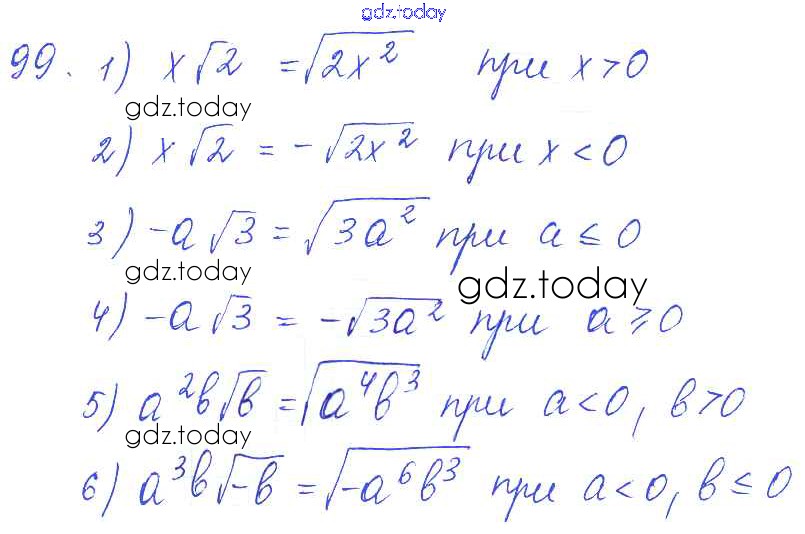 gdz.today
99. 1) x√2 = √2x² при x>0
gdz.today
2) x√2 = -√2x² при x<0
3) -a√3 = √3a² при a≤0
gdz.today
gdz.today
4) -a√3 = -√3a² при a≥0
5) a²b√b = √a⁴b³ при a<0, b>0
gdz.today
6) a³b√-b = √-a⁶b³ при a<0, b≤0